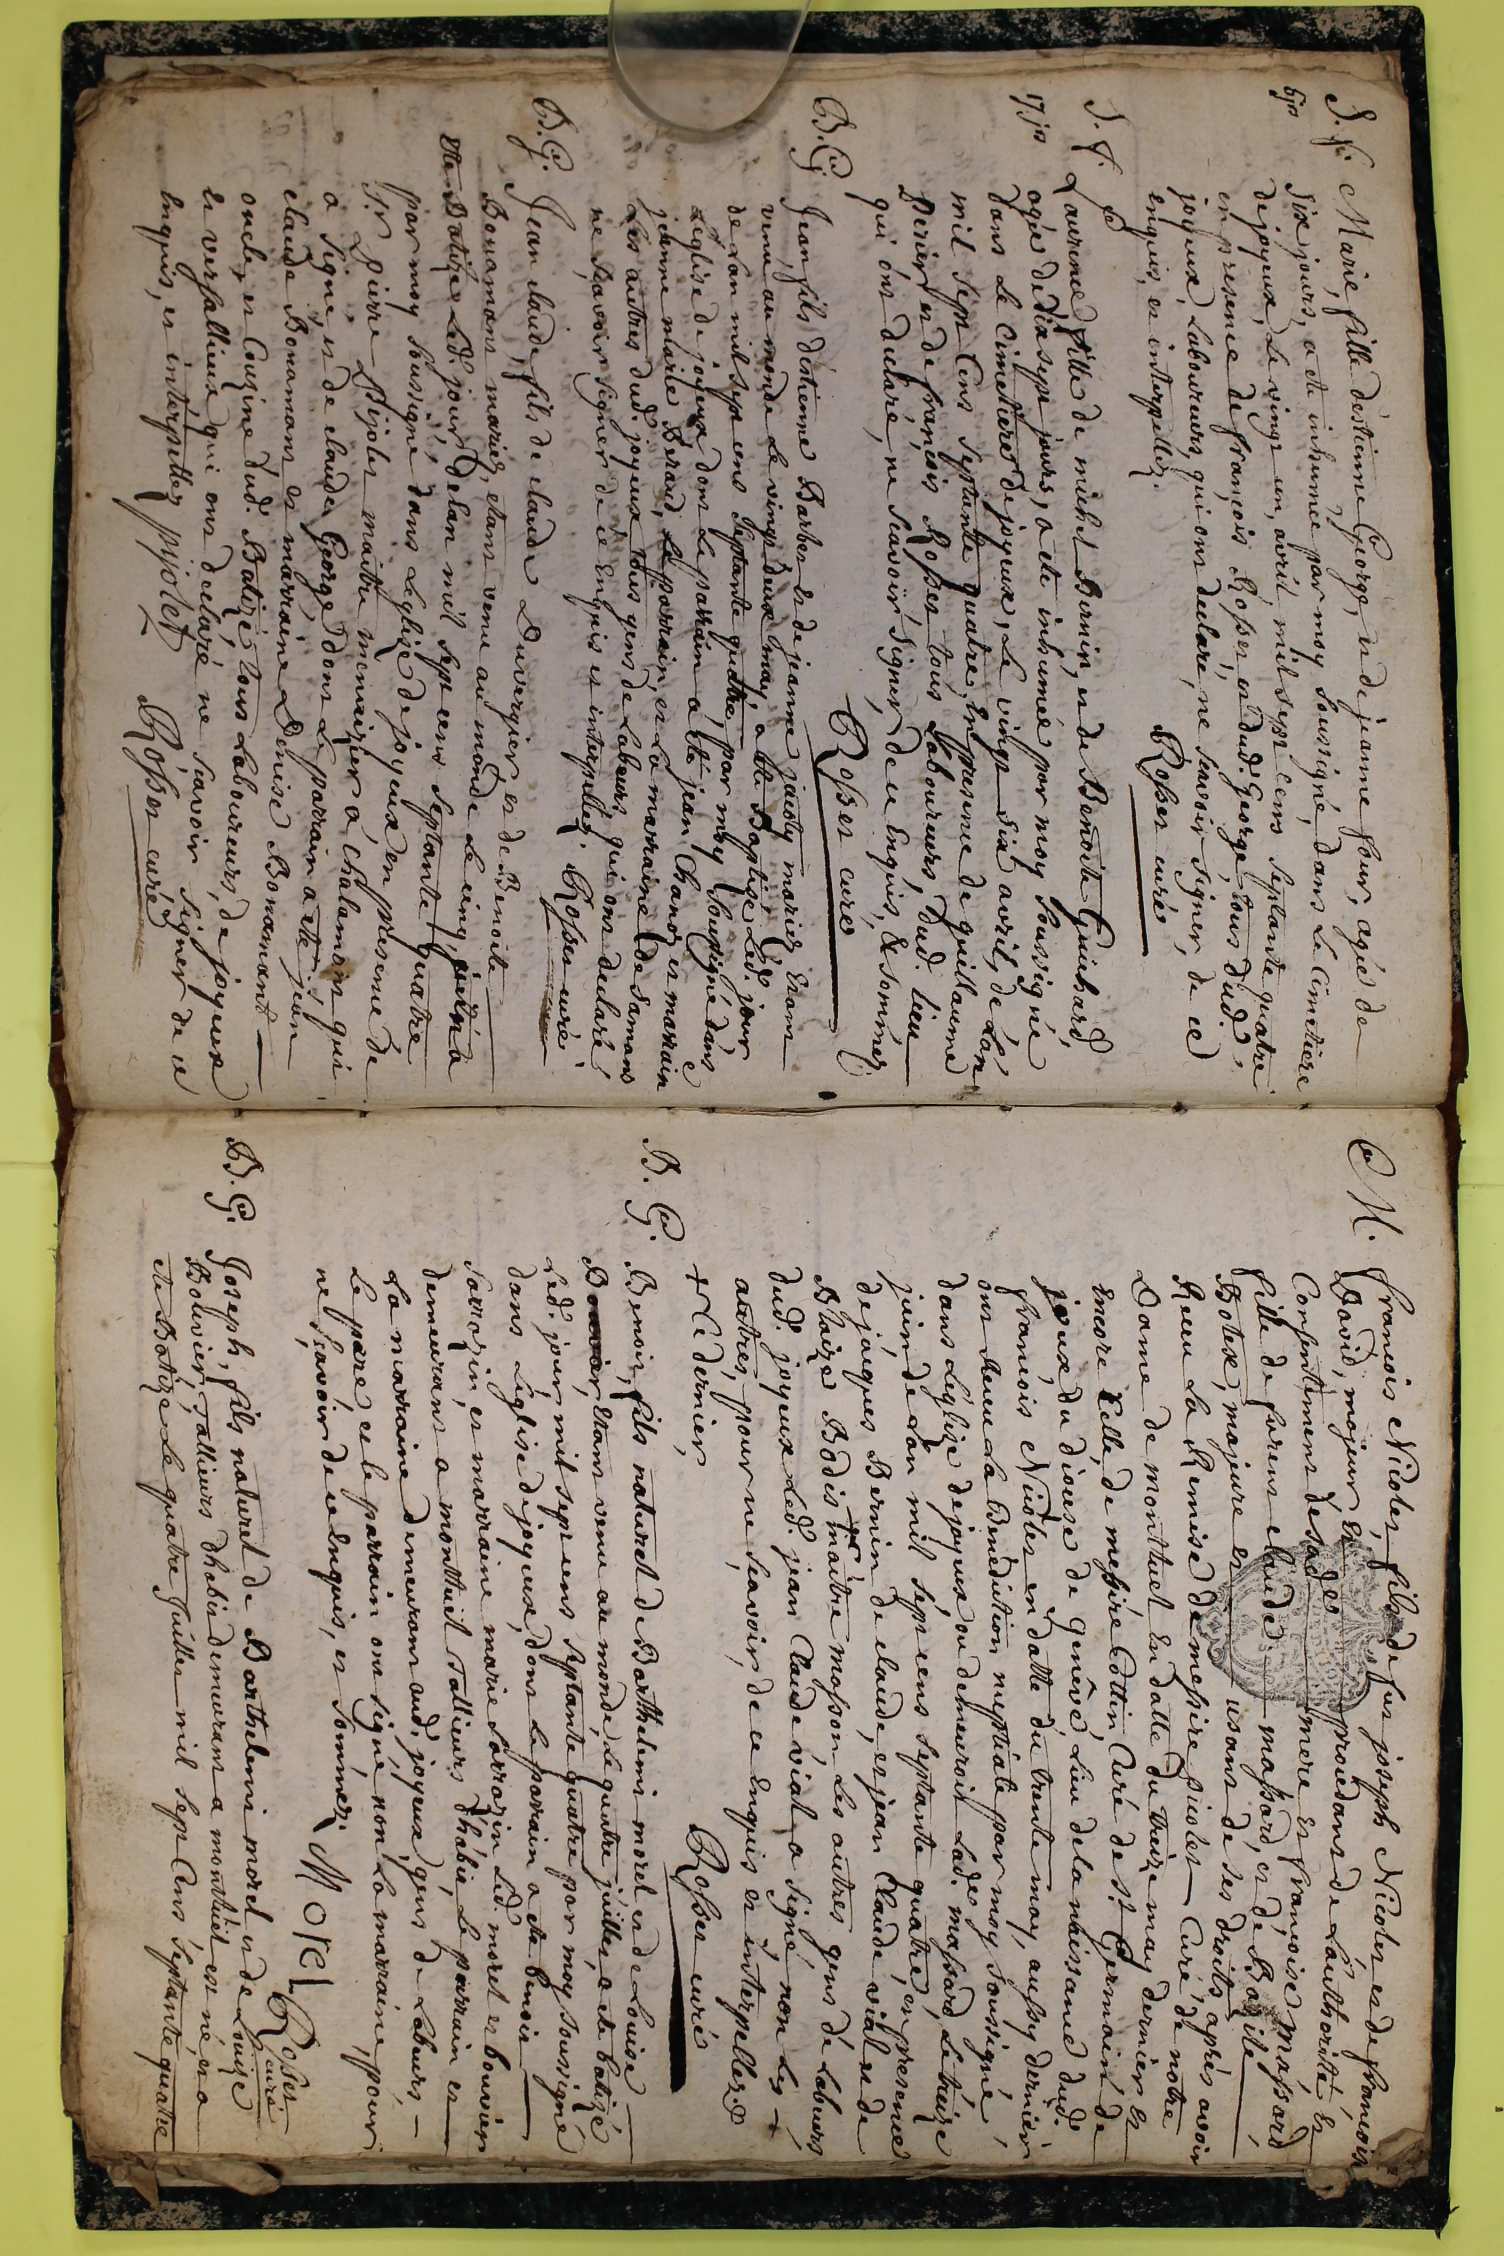 S. f. Marie, fille d'estienne George, et de jeanne four, agée de
6 jrs six jours, a eté inhumée par moy soussigné, dans le Cimetiere
de joyeux, le vingt un, avril mil sept cens septante quatre
en presence de françois Rosset, et dud. George, tous dud.
joyeux, Laboureurs, qui ont declaré, ne scavoir signer, de ce
enquis, et interpellez.
Rosset curé
S. f. Laurence fille de michel Bernin, et de Benoite Guichard,
17 jrs agée de dix sept jours, a eté inhumée par moy soussigné
dans Le Cimetiere de joyeux, Le vingt six avril, de L'an
mil sept Cens septante quatre, en presence de guillaume
perier et de françois Rosset tous Laboureurs, dud. lieu
qui ont declaré, ne scavoir signer, de ce enquis, & sommez
Rosset curé
B. G. Jean, fils d'estienne Barbet et de jeanne jacoty mariez, étant
venu au monde Le vingt deux may, a eté Baptizé Led. jour
de Lan mil sept cens septante quatre, par moy soussigné dans
L'eglise de joyeux dont Le parrain a eté jean Chanot et marraine
jeanne marie Berard, Le parrain, et La marraine de samans
Les autres dud. joyeux tous gens de Labeurs, qui ont declaré,
ne scavoir signer de ce enquis et interpellez. Rosset curé
B. G. Jean claude, fils de claude Duvergier et de Benoite
Bonamant mariez, étant venu au monde Le cinq, juin a
eté Batizé Led. jour, de lan mil sept cens septante quatre
par moy soussigné dans Leglise de joyeux en presence de
Sr. pierre pijolet maitre menuizier a chalamont qui
a signé, et de claude George dont Le parrain a eté jean
claude Bonamant et marraine Denise Bonamant
oncle, et Cousine dud. Batizé, tous Laboureurs, de joyeux
et versallieux qui ont declaré ne scavoir signer de ce
enquis, et interpellez pijolet Rosset curé
M. françois Nicolet, fils de fut joseph Nicolet, et de françoise
David, majeur et procedant de L'authorité et
Consentement de sad. mere Et françoise Massard
fille de furent claude massard, et de Bazile
Botex, majeure et usant de ses droits, après avoir
Receu La Remise de messire piolet Curé, de notre
Dame de montluel En datte du treize may dernier et
encore Celle, de messire Cottin Curé de St. Germain de
joux du diocese de genêve, Lieu de la naissance dud.
françois Nicolet en datte du trente may, aussy dernier
ont Receu La Benediction nuptiale par moy soussigné,
dans L'eglise de joyeux ou demeuroit Lad. massard, Le treize
juin de L'an mil sept cens septante quatre, en presence
de jacques Bernin de claude, et jean Claude vial et de
Blaize Bodis maitre masson Les autres gens de Labeurs
dud. joyeux Led. jean Claude vial a signé non les +
autres, pour ne scavoir, de ce enquis et interpellez
+ Le dernier, Rosset curé
B. G. Benoit, fils naturel de Barthelemi morel et de Louise
Bouvier, étant venu au monde, Le quatre juillet, a eté batizé
Led. jour mil sept cens septante quatre par moy soussigné
dans L'eglise de joyeux, dont Le parrain a eté benoit
sarrazin, et marraine marie sarrazin Led. morel et bouvier
demeurant a montluel tallieurs d'habit, Le parrain et
La marraine demeurant aud. joyeux gens de Labeurs
Le pere et le parrain ont signé non La marraine, pour
ne scavoir de ce enquis, et sommez
Morel Rosset curé
B. G. Joseph, fils naturel de Barthelemi morel et de Louize
Bouvier, tallieurs d'habit demeurant a montluel est né, et a
eté Batizé Le quatre juillet mil sept Cens septante quatre